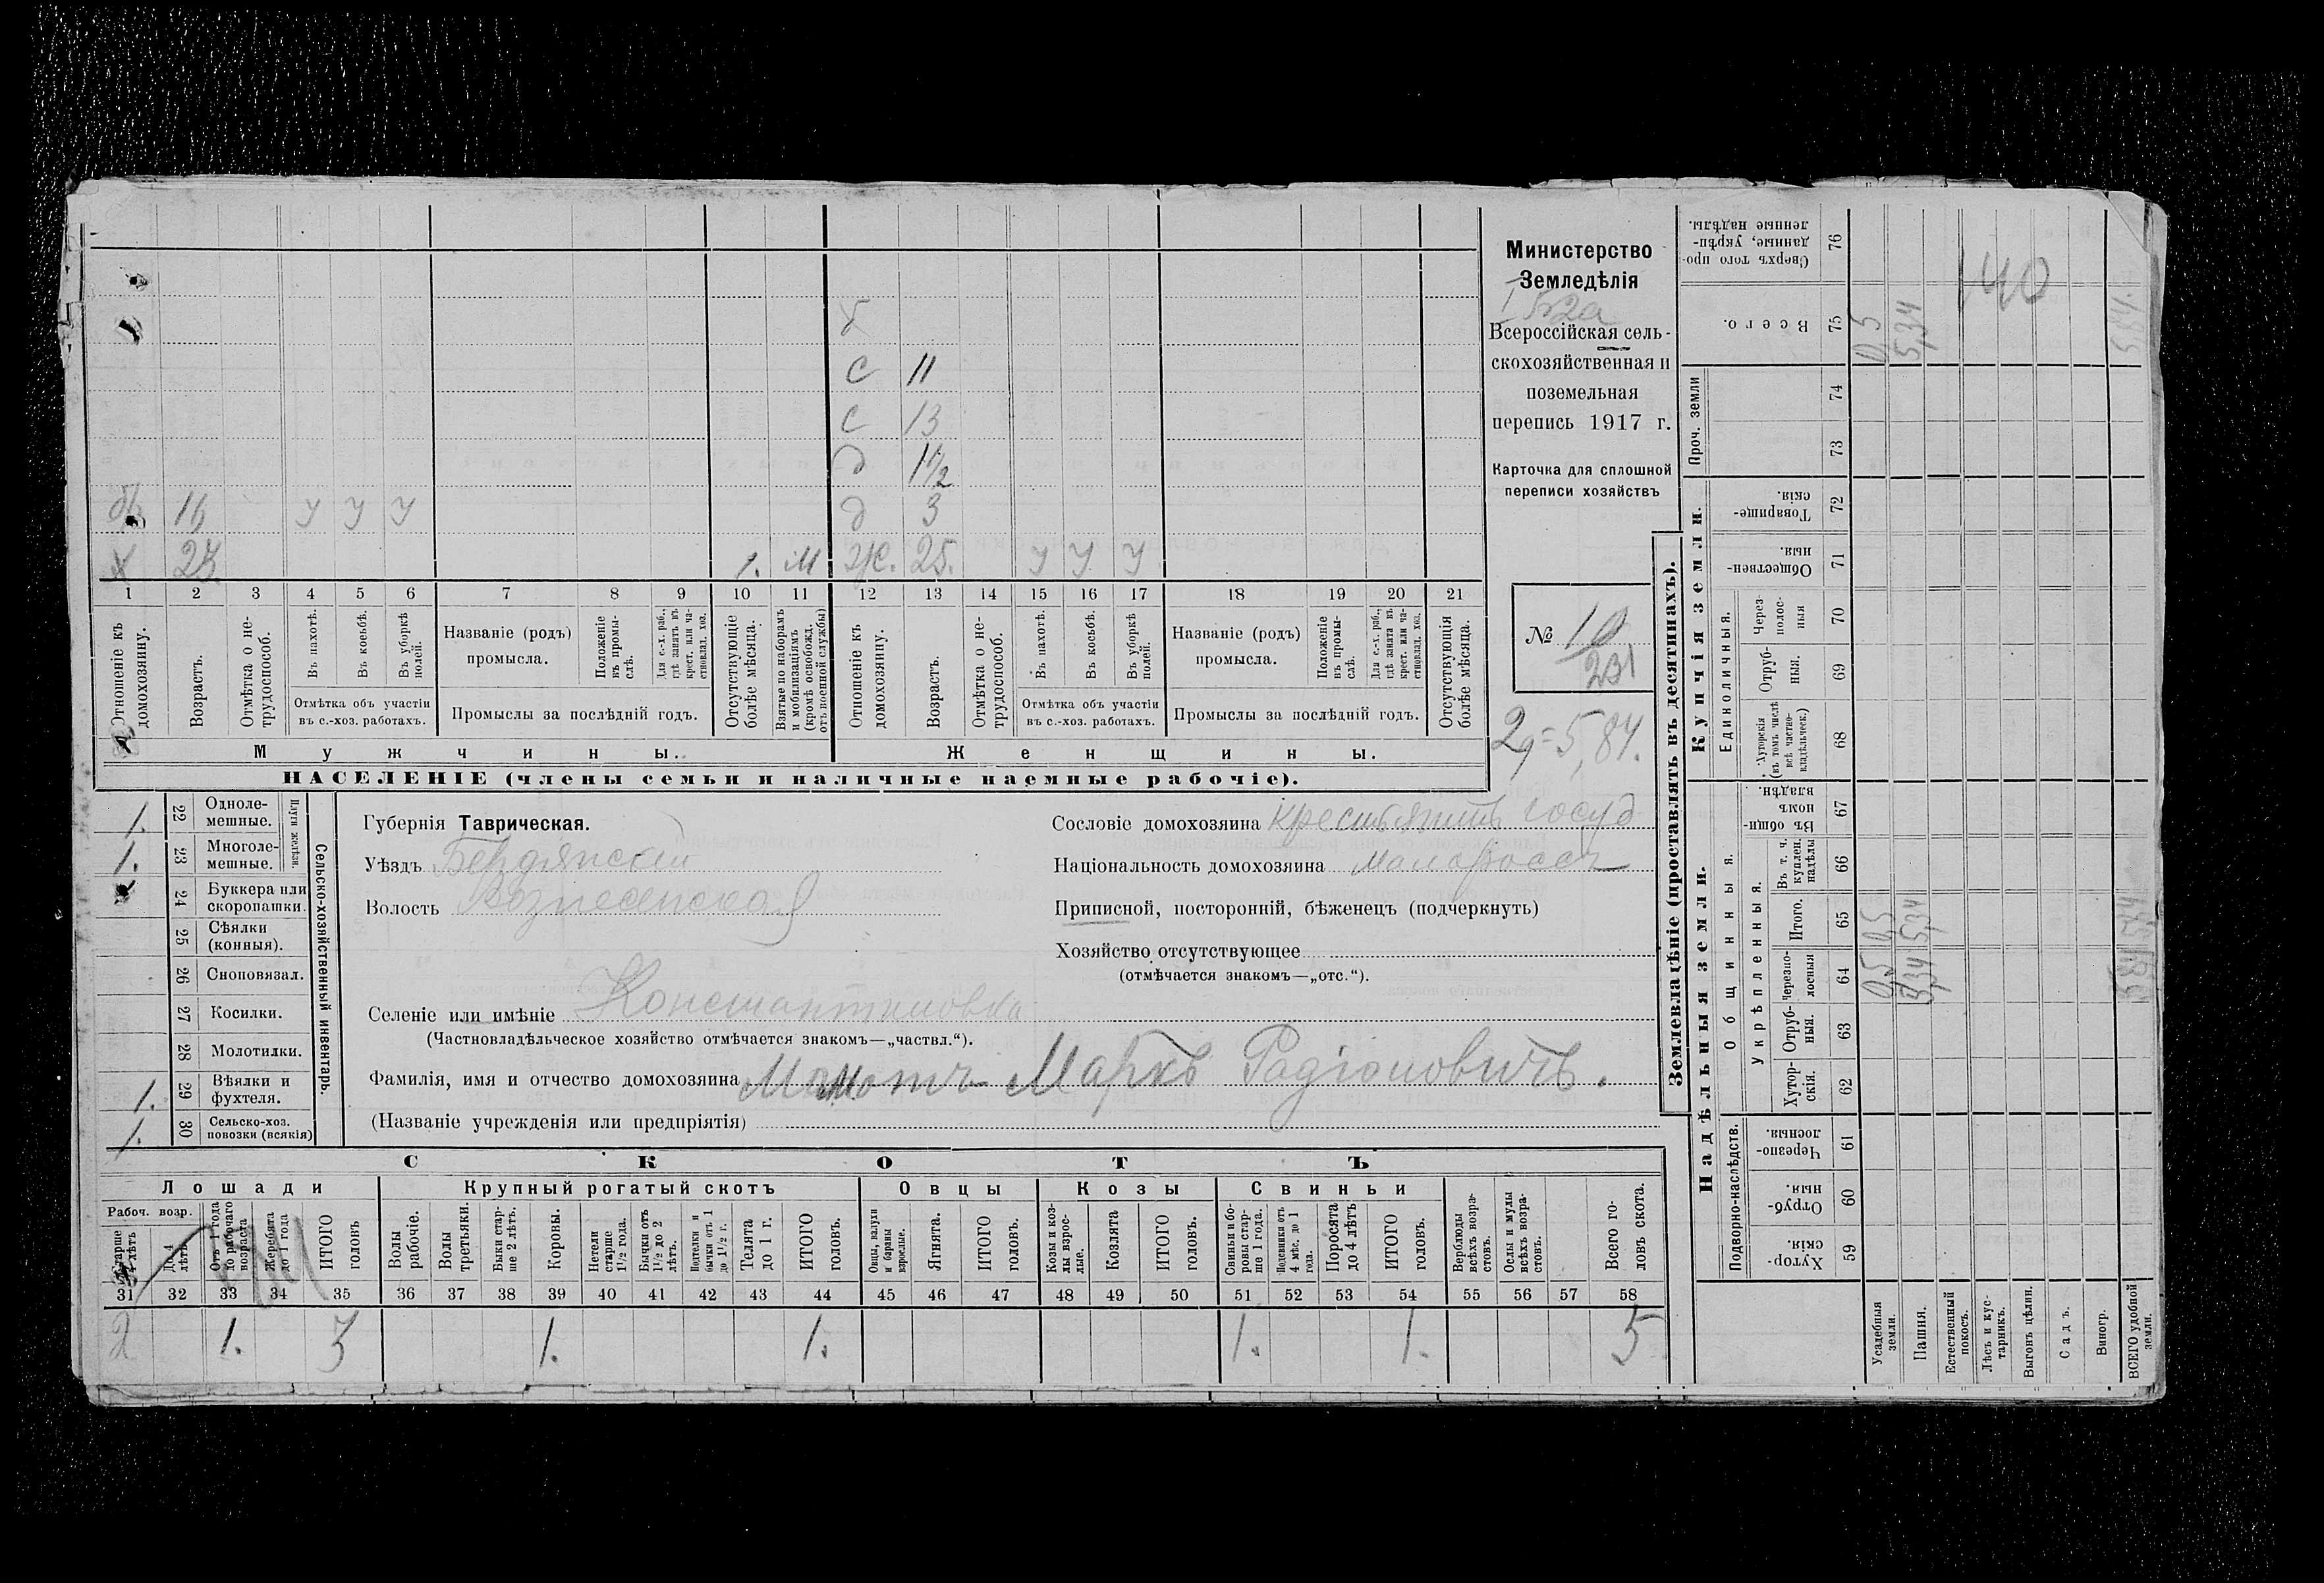 х
с 11
с 13
д 1 1/2
бр 16 у у у д 3
х 27. 1. м ж. 25. у у у
1 2 3 4 5 6 7 8 9 10 11 12 13 14 15 16 17 18 19 20 21
Отношеніе къ домохозяину.
Возрастъ.
Отмѣтка о не-трудоспособ.
Въ пахотѣ.
Въ косьбѣ.
Въ уборкѣ полей.
Отмѣтка объ участіи въ с.-хоз. работахъ.
Названіе (родъ) промысла.
Положеніе въ промы-слѣ.
Для с.-х. раб., гдѣ занятъ въ крест. или ча-стновлад. хоз.
Промыслы за послѣдній годъ.
Отсутствующіе болѣе мѣсяца.
Взятые по наборамъ и мобилизаціямъ (кромѣ освобожд. отъ военной службы)
Отношеніе къ домохозяину.
Возрастъ.
Отмѣтка о не-трудоспособ.
Въ пахотѣ.
Въ косьбѣ.
Въ уборкѣ полей.
Отмѣтка объ участіи въ с.-хоз. работахъ.
Названіе (родъ) промысла.
Положеніе въ промы-слѣ.
Для с.-х. раб., гдѣ занята въ крест. или ча-стновлад. хоз.
Промыслы за послѣдній годъ.
Отсутствующія болѣе мѣсяца.
Мужчины. Женщины.
НАСЕЛЕНІЕ (члены семьи и наличные наемные рабочіе).
Министерство
Земледѣлія
Всероссійская сель-
скохозяйственная и
поземельная
перепись 1917 г.
Карточка для сплошной
переписи хозяйствъ
№ 10
231
2g=5,84.
1. 22 Одноле-мешные.
1. 23 Многоле-мешные.
Плуги желѣзн.
24 Буккера или скоропашки.
25 Сѣялки (конныя).
26 Сноповязал.
27 Косилки.
28 Молотилки.
1. 29 Вѣялки и фухтеля.
1. 30 Сельско-хоз. повозки (всякія)
Сельско-хозяйственный инвентарь.
Губернія Таврическая.
Уѣздъ Бердянскій
Волость Вознесенская
Селеніе или имѣніе Константиновка
(Частновладѣльческое хозяйство отмѣчается знакомъ—„частвл.“).
Фамилія, имя и отчество домохозяина Мамотъ Маркъ Радіоновичъ.
(Названіе учрежденія или предпріятія)
Сословіе домохозяина крестьянинъ госуд
Національность домохозяина малороссъ
Приписной, посторонній, бѣженецъ (подчеркнуть)
Хозяйство отсутствующее
(отмѣчается знакомъ—„отс.“).
СКОТЪ
Лошади Крупный рогатый скотъ Овцы Козы Свиньи
Рабоч. возр.
Старше 4 лѣтъ
До 4 лѣтъ
Отъ 1 года до рабочаго возраста
Жеребята до 1 года
ИТОГО головъ
Волы рабочіе.
Волы третьяки.
Быки стар-ше 2 лѣтъ.
Коровы.
Нетели старше 1½ года.
Бычки отъ 1½ до 2 лѣтъ.
Подтелки и бычки отъ 1 до 1½ г.
Телята до 1 г.
ИТОГО головъ.
Овцы, валухи и бараны взрослые.
Ягнята.
ИТОГО головъ.
Козы и коз-лы взрос-лые.
Козлята
ИТОГО головъ.
Свиньи и бо-ровы стар-ше 1 года.
Подсвинки отъ 4 мѣс. до 1 года.
Поросята до 4 лѣтъ
ИТОГО головъ.
Верблюды всѣхъ возра-стовъ.
Ослы и мулы всѣхъ возра-стовъ.
Всего го-ловъ скота.
31 32 33 34 35 36 37 38 39 40 41 42 43 44 45 46 47 48 49 50 51 52 53 54 55 56 57 58
2 1. 3 1. 1. 1. 1. 5
Землевладѣніе (проставлять въ десятинахъ).
Надѣльныя земли.
Купчія земли.
Проч. земли
Подворно-наслѣдств.
Общинныя.
Укрѣпленныя.
Единоличныя.
Сверхъ того про-данные, укрѣп-ленные надѣлы. 76
Всего. 75 0,5 5,34 5,84.
140
74
73
Товарище-скія. 72
Обществен-ныя. 71
Через-полос-ныя 70
Отруб-ныя. 69
Хуторскія (въ томъ числѣ всѣ частно-владѣльческ.) 68
Въ общи-номъ владѣн. 67
Въ т. ч. куплен. надѣлы 66
Итого. 65 0,5 5,34
Черезпо-лосныя 64 0,5 5,34
Отруб-ныя. 63
Хутор-скія. 62
Черезпо-лосныя. 61
Отруб-ныя. 60
Хутор-скія. 59
Усадебныя земли.
Пашня.
Естественный покосъ.
Лѣсъ и кус-тарникъ.
Выгонъ цѣлин.
Садъ.
Виногр.
ВСЕГО удобной земли.